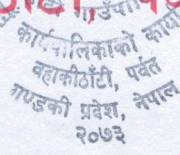 गाउँपा
कार्यपालिकाको कार्या
वहाकीठाँटी, पर्वत
गण्डकी प्रदेश, नेपाल
२०७३